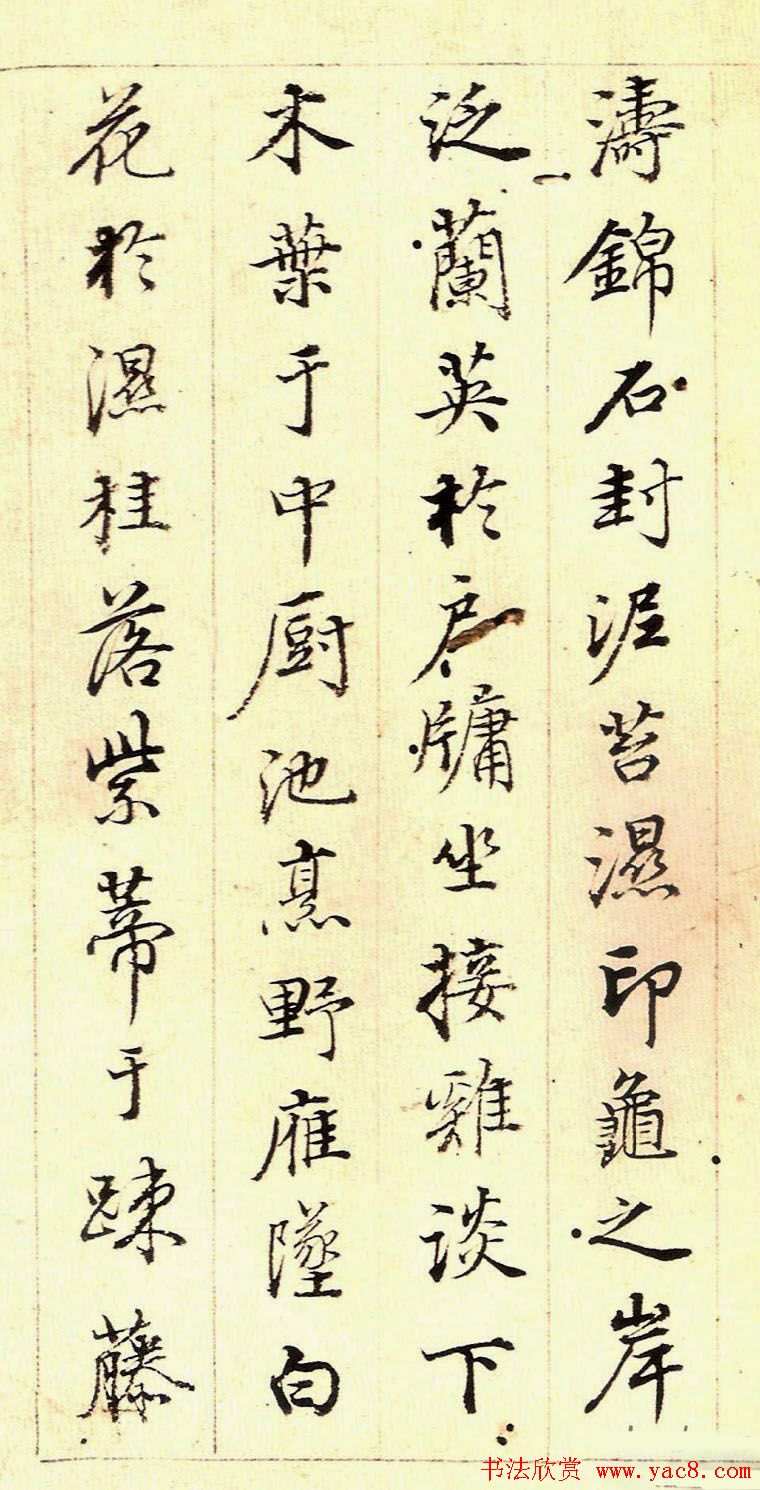 濤錦石封泥苔濕印龜之岸
泛蘭英於户牖坐接雞談下
木葉于中厨池髙野雁墜白
花於濕桂落紫蔕于踈藤
书法欣赏 www.yac8.com